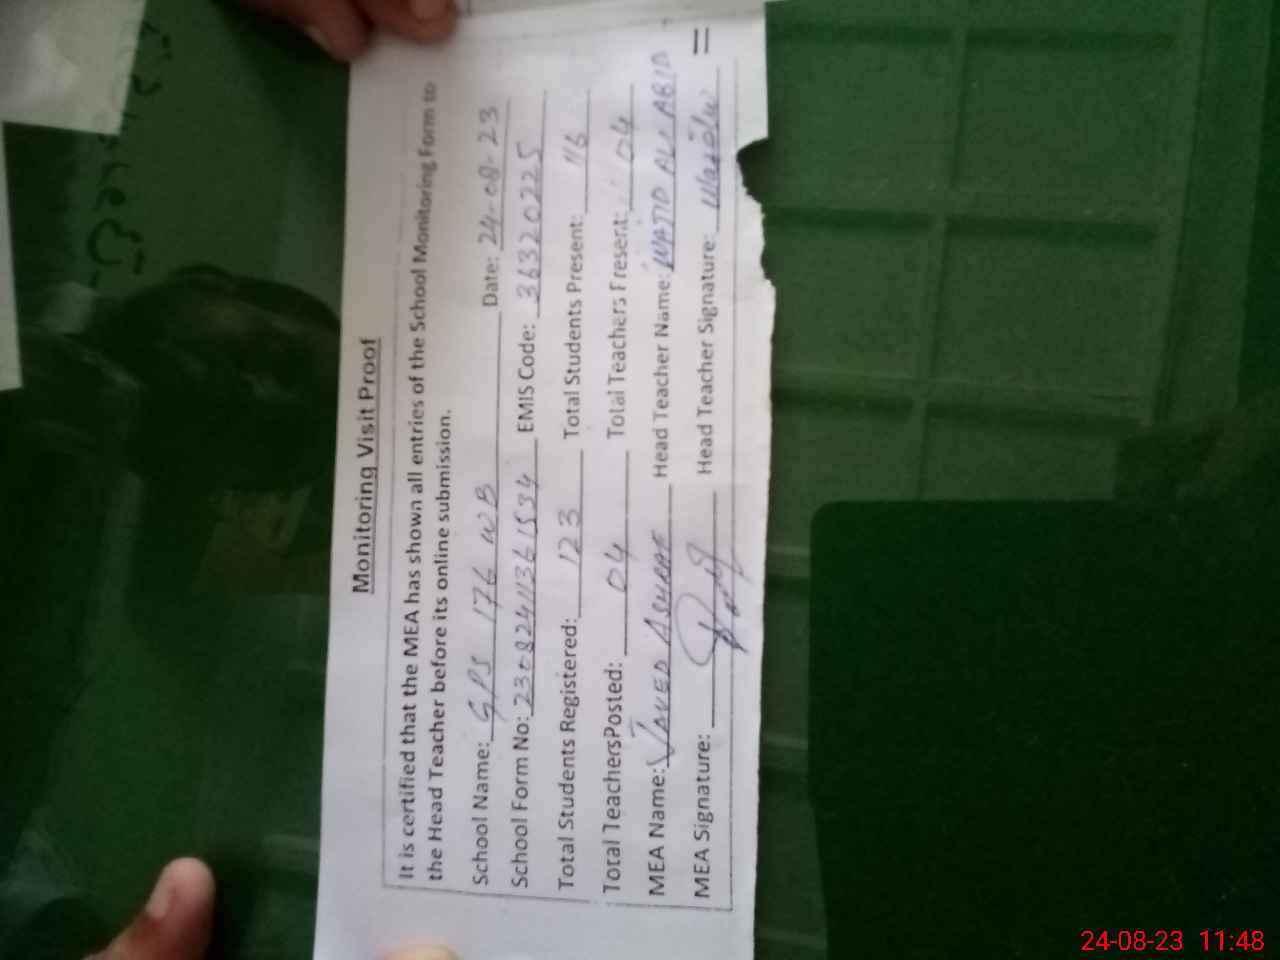 Monitoring Visit Proof
It is certified that the MEA has shown all entries of the School Monitoring Form to
the Head Teacher before its online submission.
School Name: GPS 176 WB Date: 24-08-23
School Form No: 23082411361534 EMIS Code: 36320225
Total Students Registered: 123 Total Students Present: 116
Total TeachersPosted: 04 Total Teachers Present: 04
MEA Name: JAVED ASHRAF Head Teacher Name: WAJID ALI ABID
MEA Signature: Head Teacher Signature:
24-08-23 11:48